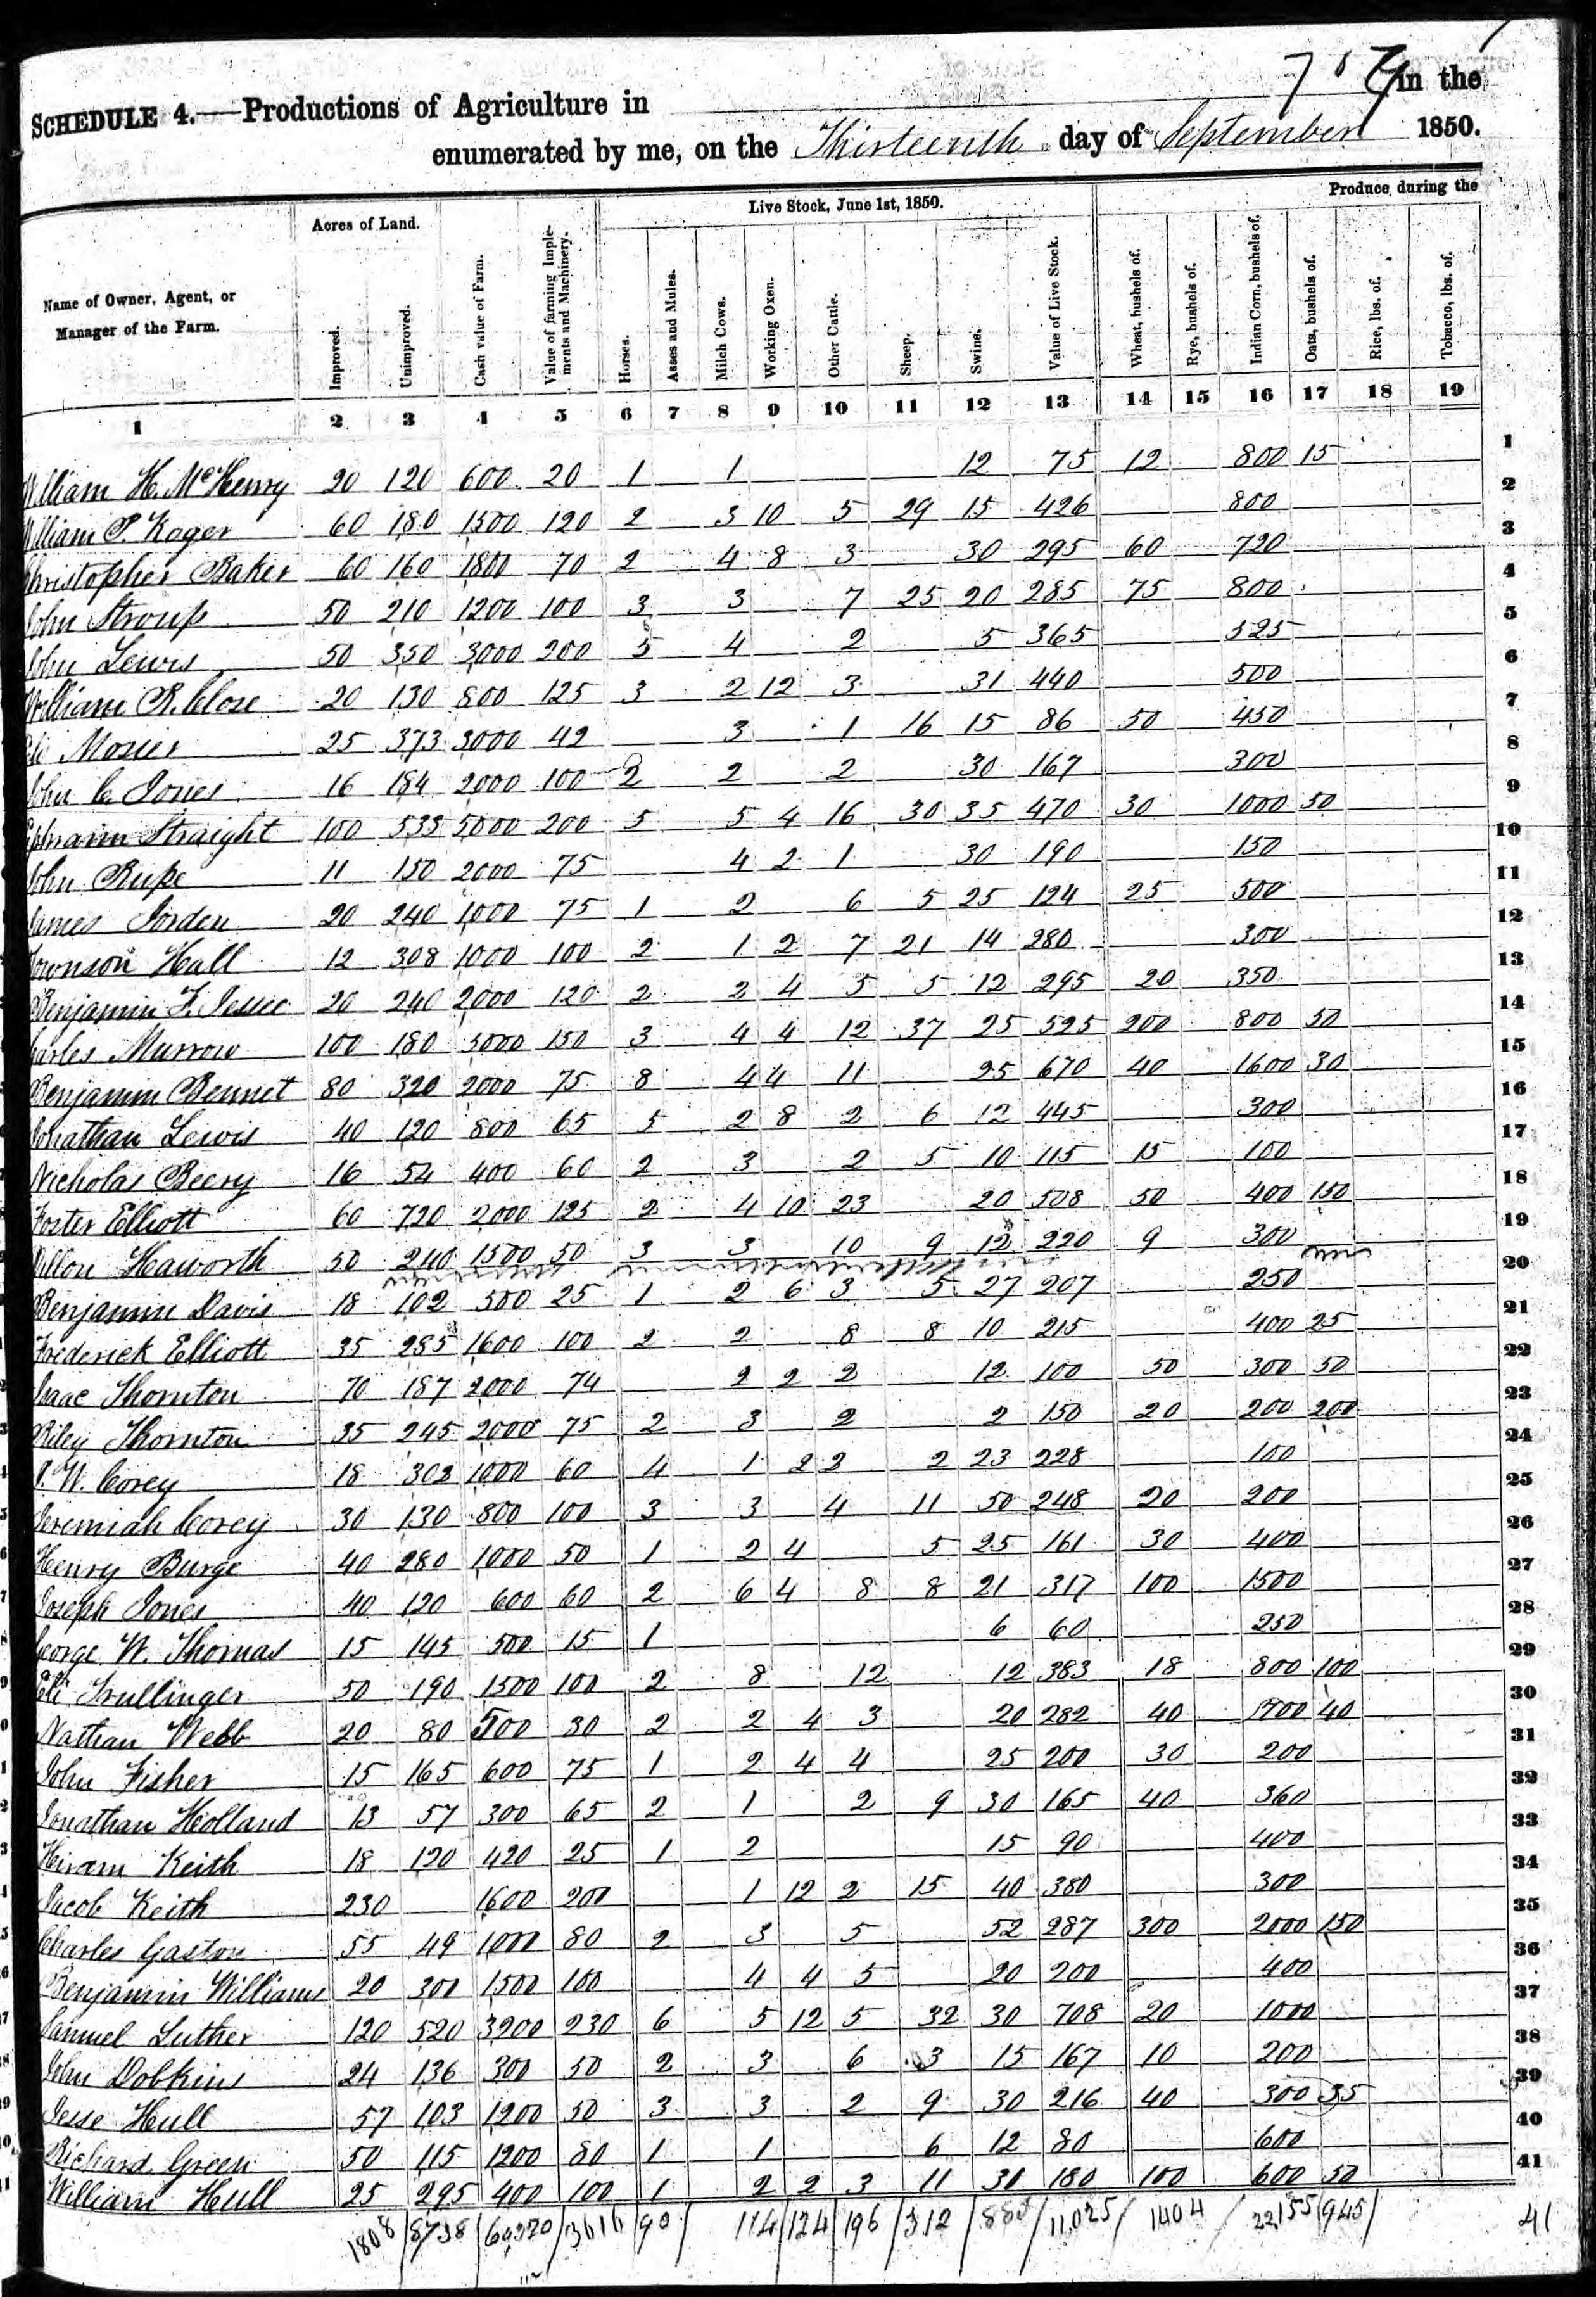 757 in the
SCHEDULE 4.—Productions of Agriculture in
enumerated by me, on the Thirteenth day of September 1850.
Produce during the
Acres of Land. Live Stock, June 1st, 1850.
Name of Owner, Agent, or Manager of the Farm. Improved. Unimproved. Cash value of Farm. Value of farming Implements and Machinery. Horses. Asses and Mules. Milch Cows. Working Oxen. Other Cattle. Sheep. Swine. Value of Live Stock. Wheat, bushels of. Rye, bushels of. Indian Corn, bushels of. Oats, bushels of. Rice, lbs. of. Tobacco, lbs. of.
1 2 3 4 5 6 7 8 9 10 11 12 13 14 15 16 17 18 19
William H. McHenry 20 120 600 20 1 1 12 75 12 800 15 1
William P. Koger 60 180 1500 120 2 3 10 5 29 15 426 800 2
Christopher Baker 60 160 1800 70 2 4 8 3 30 295 60 720 3
John Stroup 50 210 1200 100 3 3 7 25 20 285 75 800 4
John Lewis 50 350 3000 200 5 4 2 5 365 525 5
William R. Close 20 130 800 125 3 2 12 3 31 440 500 6
Eli Mosier 25 373 3000 42 3 1 16 15 86 50 450 7
John C. Jones 16 184 2000 100 2 2 2 30 167 300 8
Ephraim Straight 100 535 5000 200 5 5 4 16 30 35 470 30 1000 50 9
John Rupe 11 150 2000 75 4 2 1 30 190 150 10
James Jorden 20 240 1000 75 1 2 6 5 25 124 25 500 11
Townson Hall 12 308 1000 100 2 1 2 7 21 14 280 300 12
Benjamin F. Jessee 20 240 2000 120 2 2 4 5 5 12 295 20 350 13
Charles Murrow 100 180 5000 150 3 4 4 12 37 25 525 200 800 50 14
Benjamin Bennet 80 320 2000 75 8 4 4 11 25 670 40 1600 30 15
Jonathan Lewis 40 120 800 65 5 2 8 2 6 12 445 300 16
Nicholas Beery 16 54 400 60 2 3 2 5 10 115 15 100 17
Foster Elliott 60 720 2000 125 2 4 10 23 20 508 50 400 150 18
Dillon Haworth 50 240 1500 50 3 3 10 9 12 220 9 300 19
Benjamin Davis 18 102 500 25 1 2 6 3 5 27 207 250 20
Frederick Elliott 35 285 1600 100 2 2 8 8 10 215 400 25 21
Isaac Thornton 70 187 2000 74 2 2 2 12 100 50 300 50 22
Riley Thornton 35 245 2000 75 2 3 2 2 150 20 200 200 23
W. Corey 18 302 1000 60 4 1 2 2 2 23 228 100 24
Jeremiah Corey 30 130 800 100 3 3 4 11 50 248 20 200 25
Henry Burge 40 280 1000 50 1 2 4 5 25 161 30 400 26
Joseph Jones 40 120 600 60 2 6 4 8 8 21 317 100 1500 27
George W. Thomas 15 145 500 15 1 6 60 250 28
Eli Trullinger 50 190 1500 100 2 8 12 12 383 18 800 100 29
Nathan Webb 20 80 500 30 2 2 4 3 20 282 40 1700 40 30
John Fisher 15 165 600 75 1 2 4 4 25 200 30 200 31
Jonathan Holland 13 57 300 65 2 1 2 9 30 165 40 360 32
Hiram Keith 18 120 420 25 1 2 15 90 400 33
Jacob Keith 230 1600 200 1 12 2 15 40 380 300 34
Charles Gaston 55 49 1000 80 2 3 5 52 287 300 2000 150 35
Benjamin Williams 20 300 1500 100 4 4 5 20 200 400 36
Samuel Luther 120 520 3200 230 6 5 12 5 32 30 708 20 1000 37
John Dobkins 24 136 300 50 2 3 6 3 15 167 10 200 38
Jesse Hull 57 103 1200 50 3 3 2 9 30 216 40 300 35 39
Richard Green 50 115 1200 80 1 1 6 12 80 600 40
William Hull 25 295 400 100 1 2 2 3 11 30 180 100 600 50 41
1808 8738 60320 3616 90 114 124 196 312 888 11,025 1404 22,155 945 41